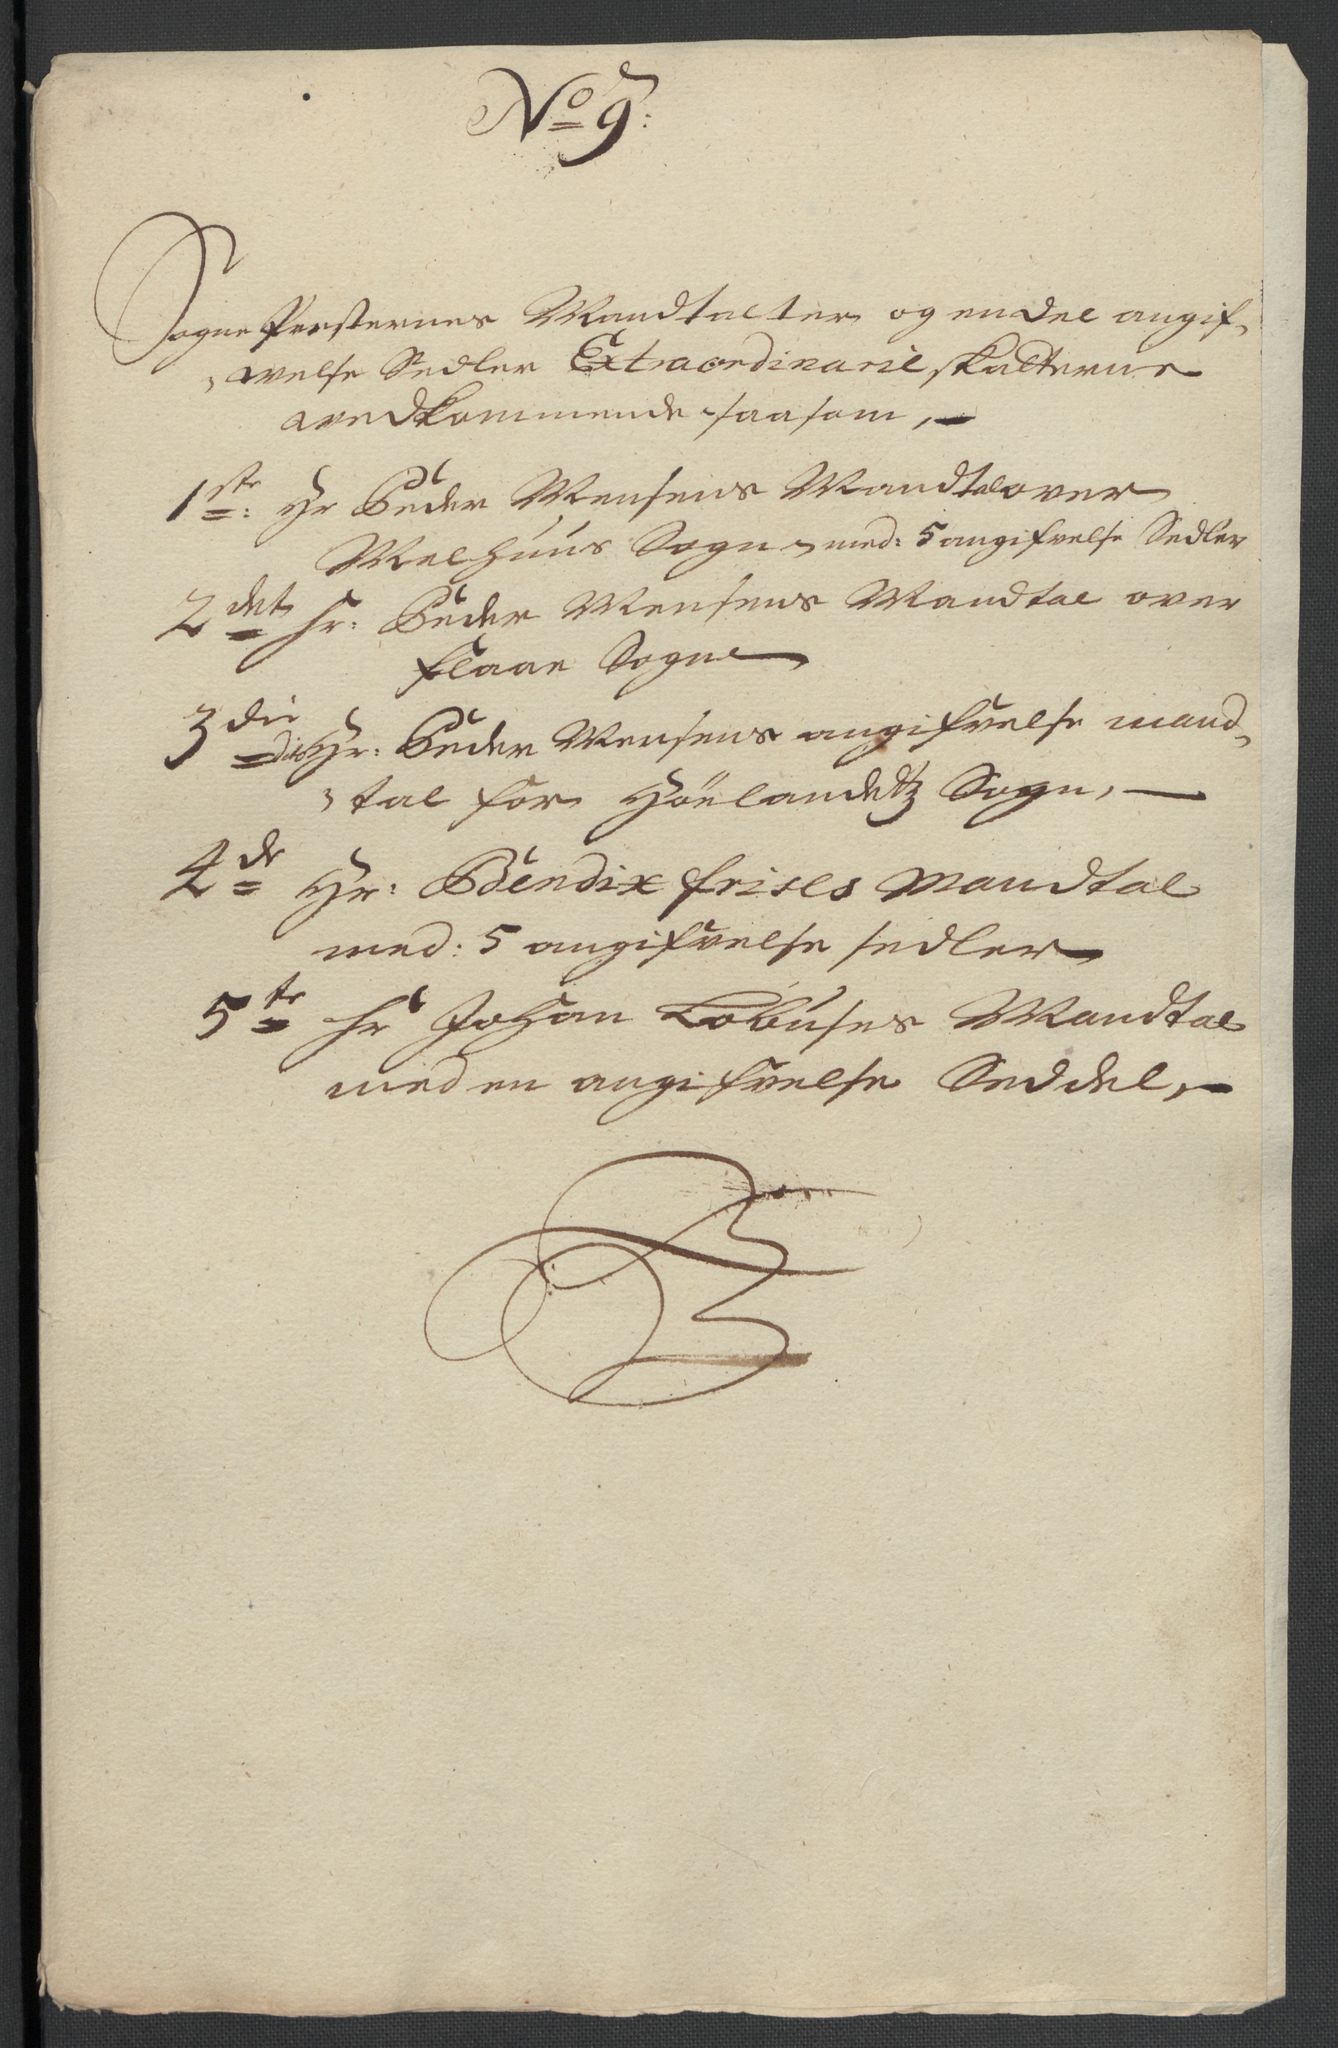 No 9:
Sogne Presternes Mandtalter og en deel angif-
velse Sedler Extraordinarie skatterne
vedkommende saasom,
1ste: Hr Peder Mensens Mandtal over
Melhuus Sogn med: 5 angifvelse Sedler
2det hr: Peder Mensens Mandtal over
Flaae Sogne
3die dito Hr: Peder Mensens angifvelse mand-
tal for Höelandetz Sogn,
4de Hr: Bendix frises Mandtal
med: 5 angifvelse sedler
5te hr Johan Lobuses Mandtal
med en angifvelse Seddel,